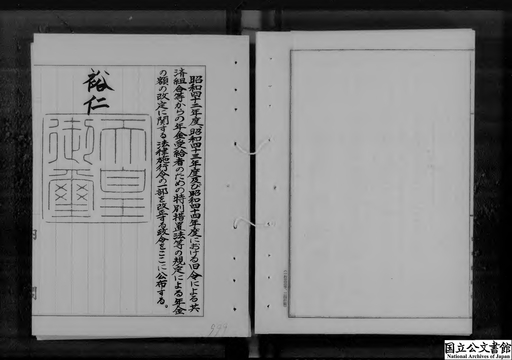 昭和四十二年度、昭和四十三年度及び昭和四十四年度における旧令による共
済組合等からの年金受給者のための特別措置法等の規定による年金
の額の改定に関する法律施行令の一部を改正する政令をここに公布する。
裕仁
天皇
御璽
国立公文書館
National Archives of Japan